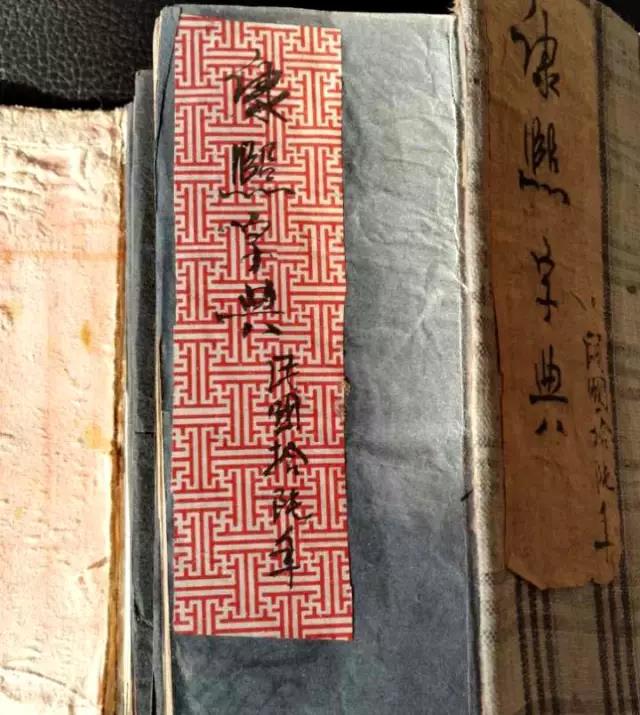 康熙字典
民國拾陸年
康熙字典
民國拾陸年